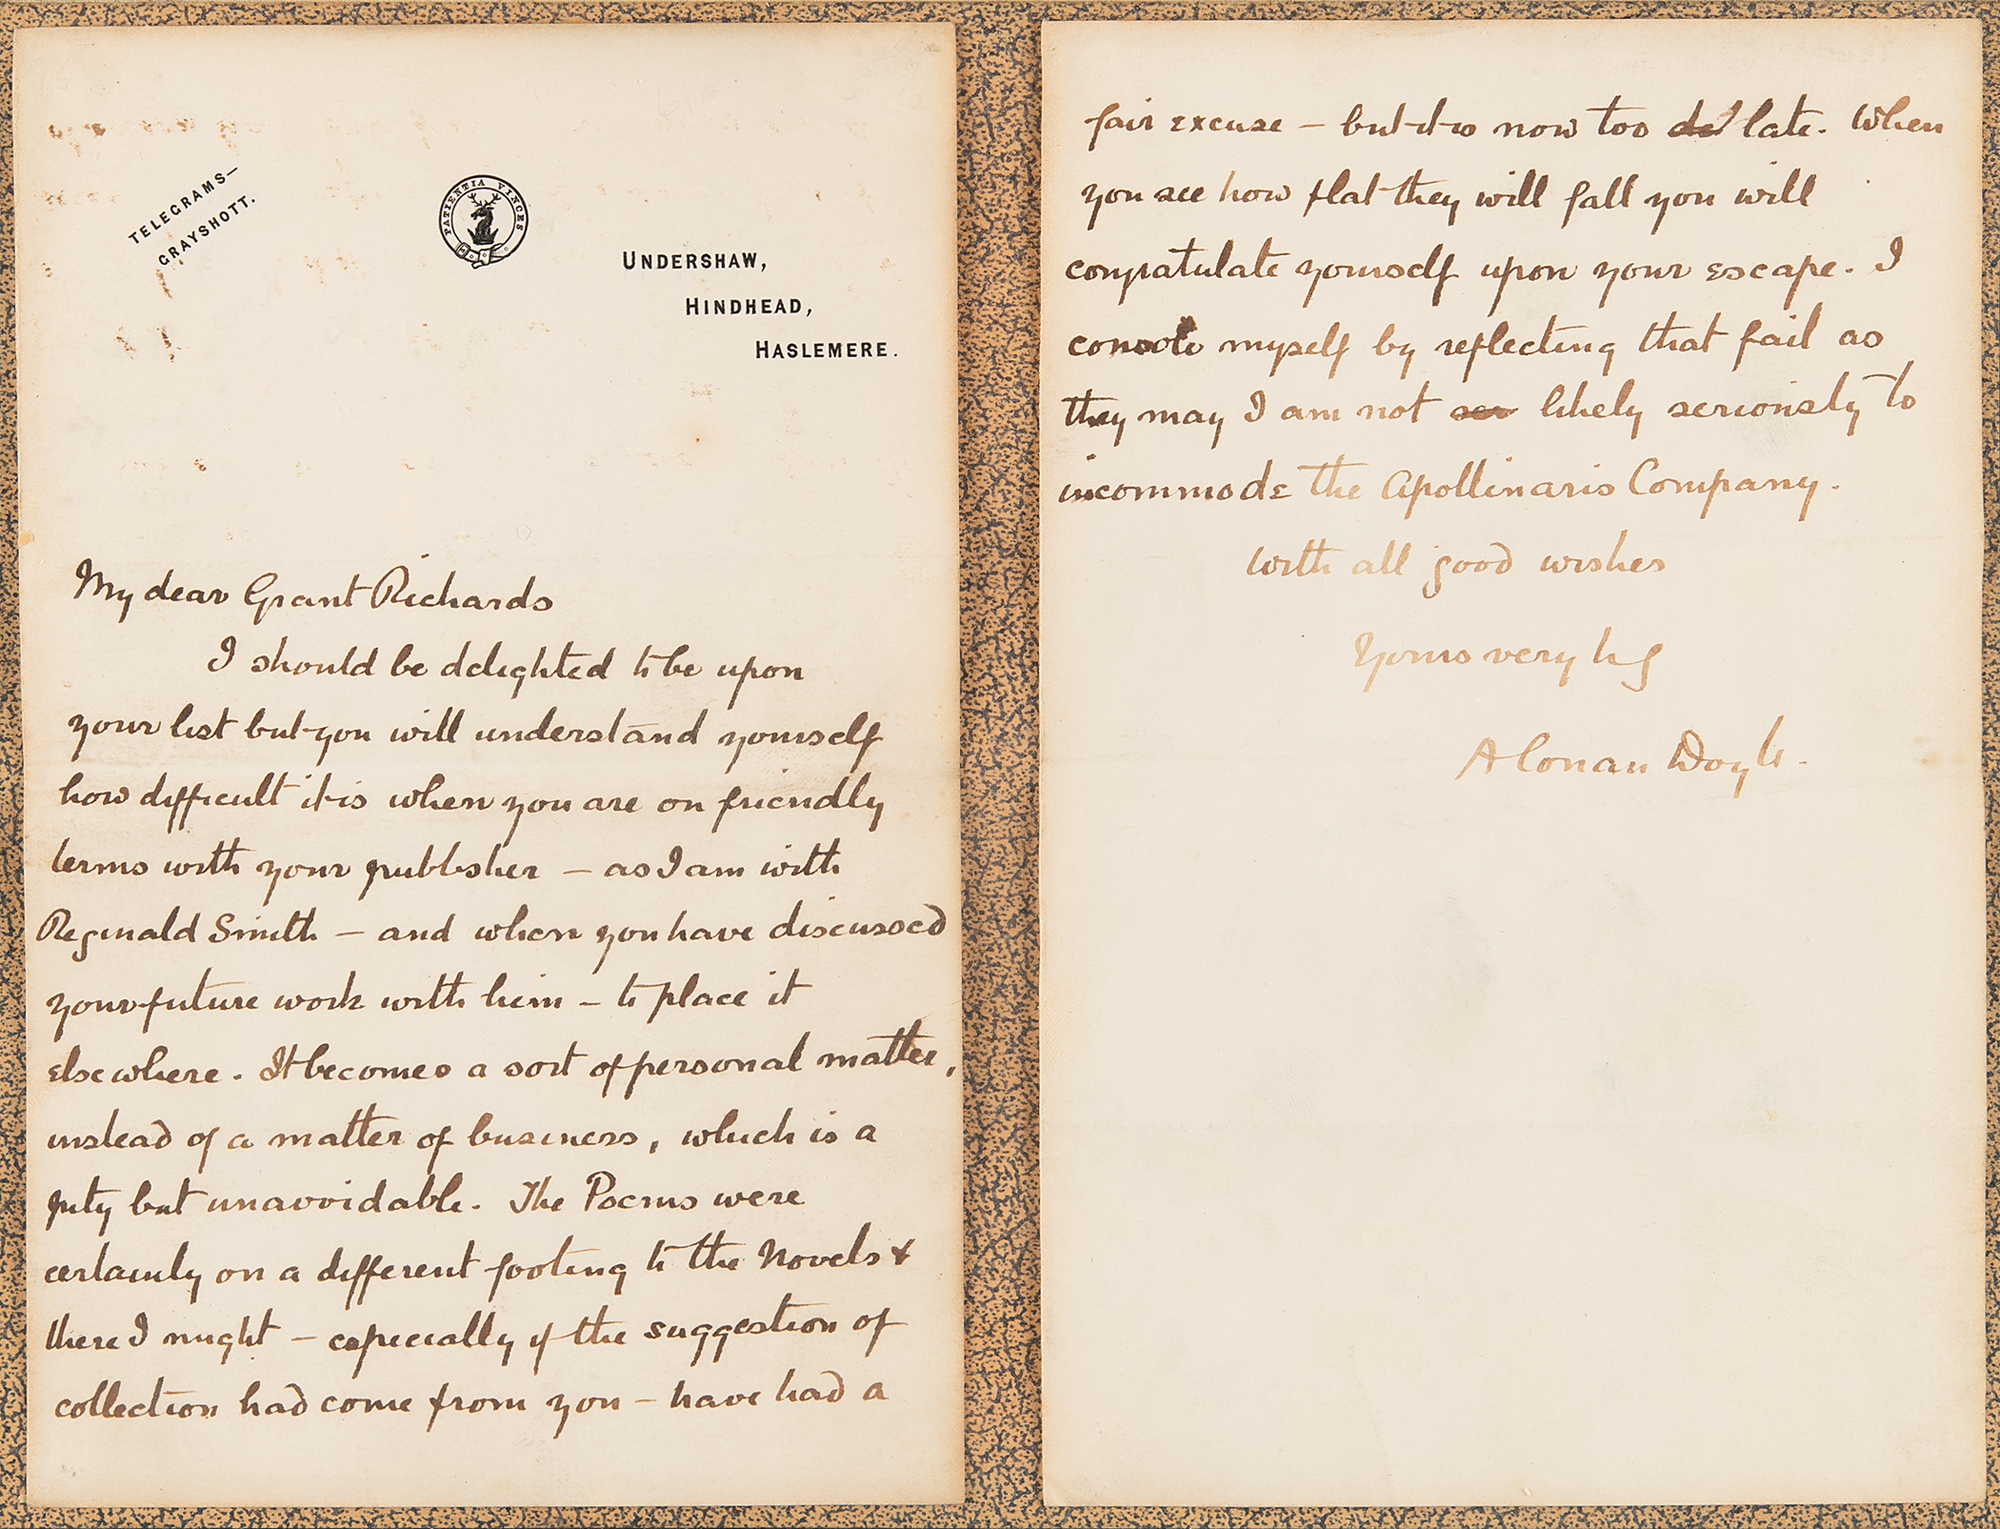 TELEGRAMS—
GRAYSHOTT.
PATIENTIA VINCES
UNDERSHAW,
HINDHEAD,
HASLEMERE.
My dear Grant Richards
I should be delighted to be upon
your list but you will understand yourself
how difficult it is when you are on friendly
terms with your publisher – as I am with
Reginald Smith – and when you have discussed
your future work with him – to place it
elsewhere. It becomes a sort of personal matter,
instead of a matter of business, which is a
pity but unavoidable. The Poems were
certainly on a different footing to the Novels &
there I might – especially if the suggestion of
collection had come from you – have had a
fair excuse – but it is now too late. When
you see how flat they will fall you will
congratulate yourself upon your escape. I
console myself by reflecting that fail as
they may I am not ser likely seriously to
incommode the Apollinaris Company.
With all good wishes
Yours very
A Conan Doyle.